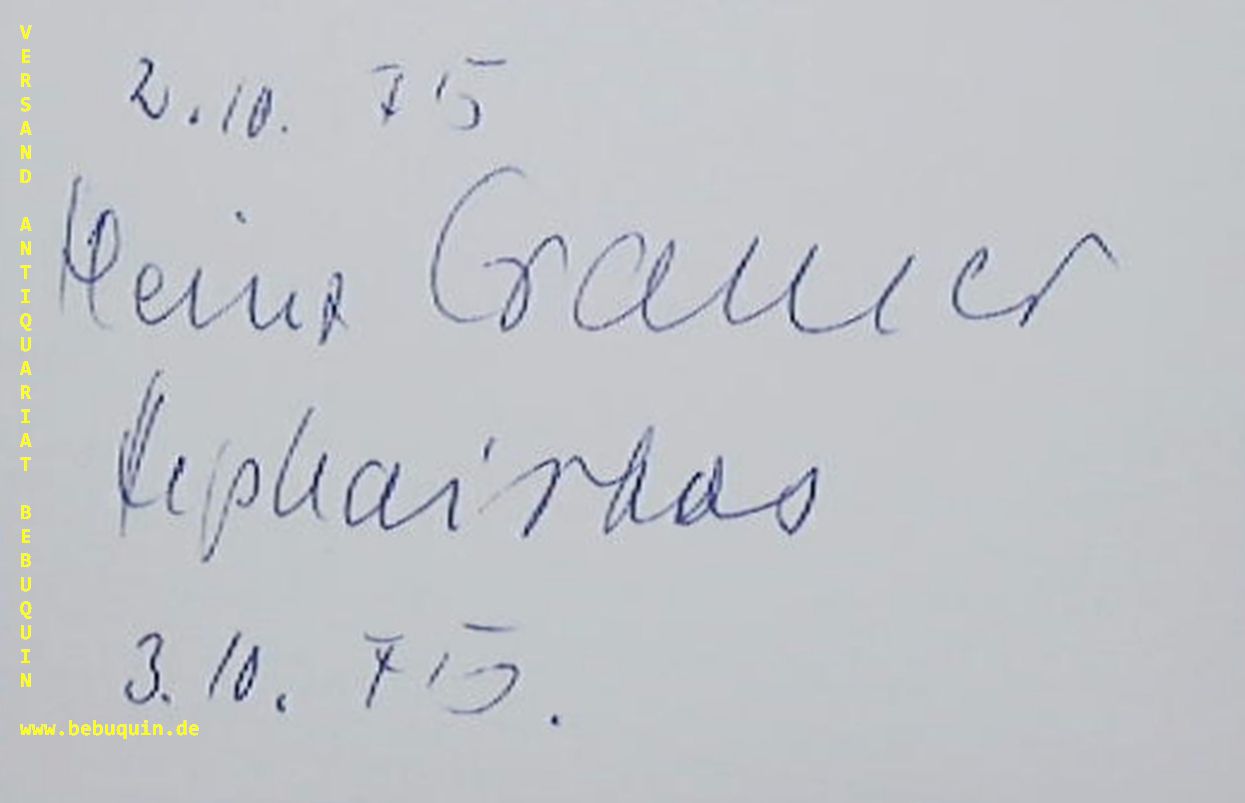 2.10. 75
Heinz Cramer
Hephaistos
3.10. 75.
VERSAND ANTIQUARIAT BEBUQUIN
www.bebuquin.de